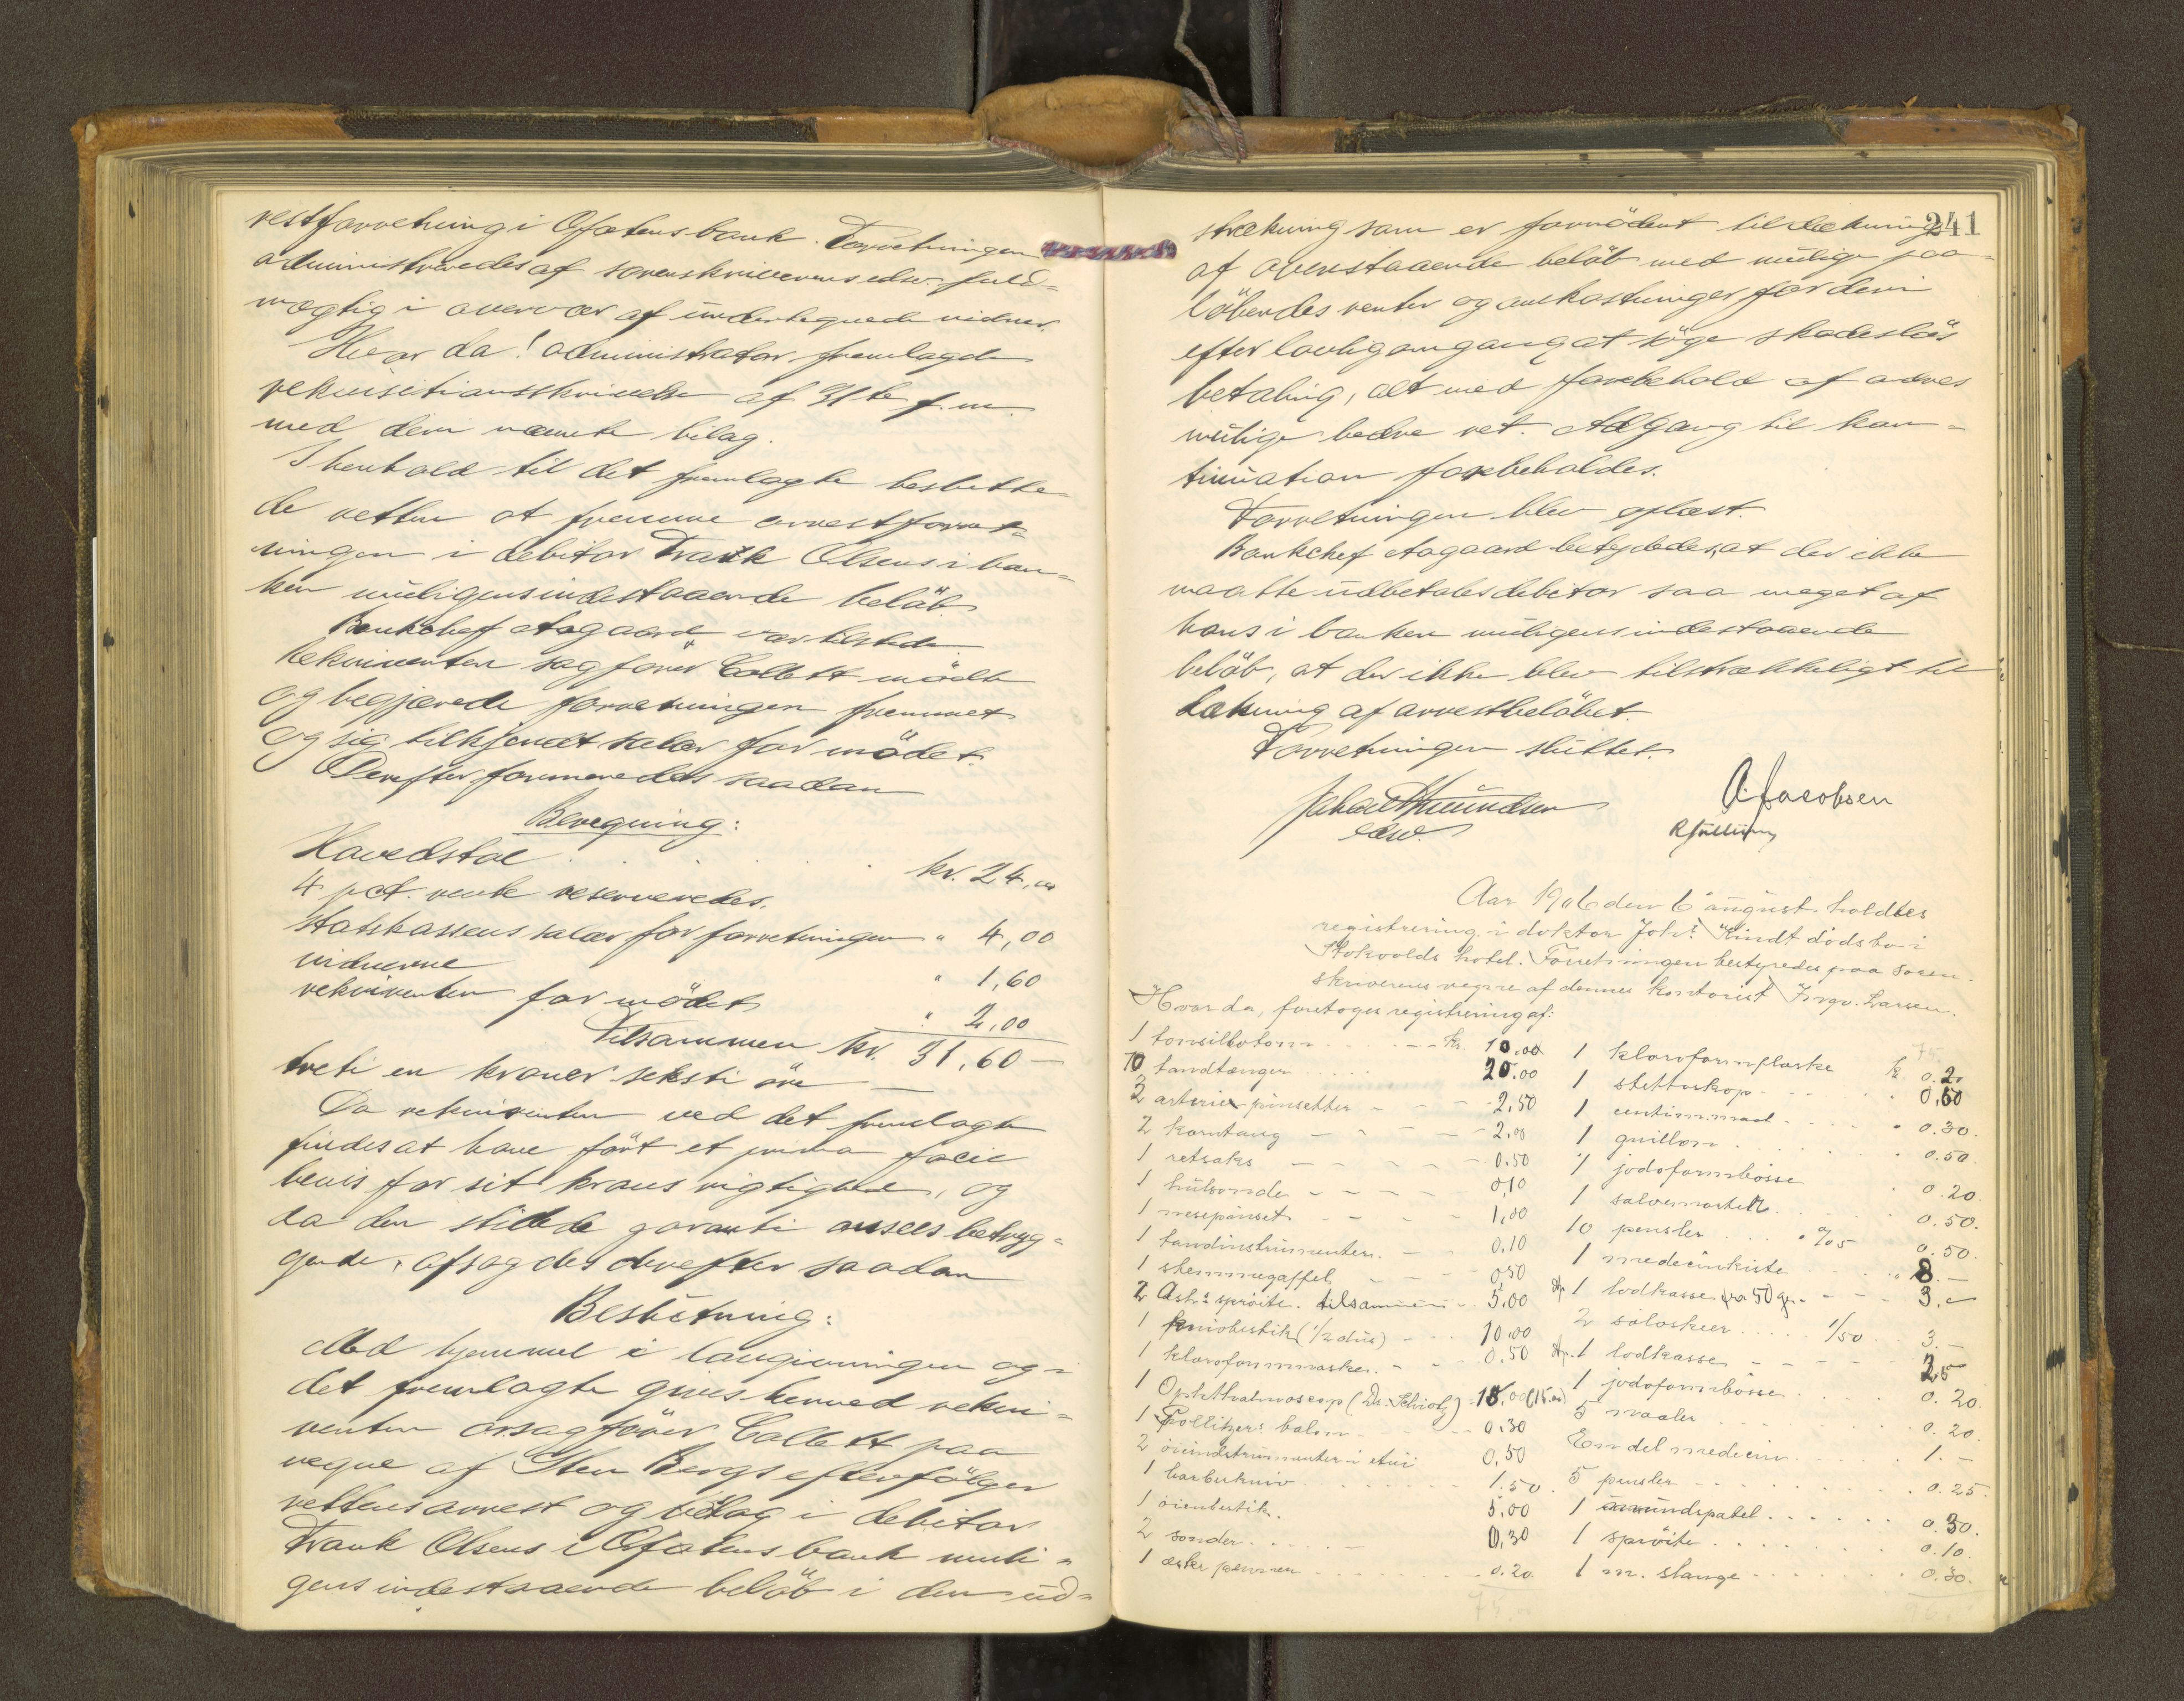 restforretning i Ofotens bank. Forretningen
administreredes af sorenskriverens edsv. fuld-
mægtig i overvær af undertegnede vidner.
Hvor da! administrator fremlagde
rekvisitionsskrivelse af 31te f. m.
med deri nævnte bilag.
I henhold til det fremlagte beslutte-
de retten at fremme arrestforret-
ningen i debitor Frank Olsens i ban-
ken muligens indestaaende beløb.
Bankchef Aagaard var tilstede.
Rekvirenten sagfører Collett mødte
og begjærede forretningen fremmet
og sig tilkjendt salær for mødet.
Derefter formeredes saadan
Beregning:
Hovedstol kr. 24,00
4 pct. rente reserveredes.
Statskassens salær for forretningen " 4,00
vidnerne " 1,60
rekvirenten for mødet " 2,00
Tilsammen kr. 31,60 —
treti en kroner seksti øre —
Da rekvirenten ved det fremlagte
findes at have ført et prima facie
bevis for sit kravs rigtighed, og
da den stillede garanti ansees betryg-
gende, afsagdes derefter saadan
Beslutning:
Med hjemmel i lovgivningen og i
det fremlagte gives herved rekvi-
renten orsagfører Collett paa
vegne af Sten Bergs efterfølger
rettens arrest og udlæg i debitor
Frank Olsens i Ofotens bank muli-
gens indestaaende beløb i den ud-
241
strækning som er fornødent til dækning
af ovenstaaende beløb med mulige paa-
løbendes renter og omkostninger for deri
efter lovlig omgang at søge skadesløs
betaling, alt med forbehold af deres
mulige bedre ret. Adgang til kon-
tinuation forbeholdes.
Forretningen blev oplæst.
Bankchef Aagaard betydedes, at der ikke
maatte udbetales debitor saa meget af
hans i banken muligens indestaaende
beløb, at der ikke blev tilstrækkeligt til
dækning af arrestbeløbet.
Forretningen sluttet.
A. Jacobsen
edsv.
Aar 1906 den 6 august holdtes
registrering i doktor Johs. Kindt dødsbo i
Hokvolds hotel. Forretningen bestyredes paa soren-
skriverens vegne af dennes kontorist Ingv. Larsen.
Hvor da, foretoges registrering af:
1 tonsillotom - - kr. 10.00
10 tandtænger 20.00
2 arterie pinsetter - - 2.50
2 korntang - - 2.00
1 retsaks - - 0.50
1 hulsonde - - 0.10
1 nesepinset - - 1.00
1 tandinstrumenter. - 0.10
1 stemmegaffel - - 0.50
2 sprøite. tilsammen - 5.00
1 knivbestik (1/2 dus) - - 10.00
1 kloroformmaske. - - 0.50
1 Ophthalmoscop (Dr. Schiøtz) - 18.00 (15.00)
1 Pollitzers balon - 0.30
2 øieinstrumenter i etui 0.50
1 barberkniv 1.50
1 øienbestik. 5.00
2 sonder 0.30
1 æske penner 0.20
75.
1 kloroformflaske k. 0.20
1 stettoskop 0.60
1 centim.maal 0.30.
1 0.50.
1 jodoformbøsse 0.20.
1 salvemortel 0.50.
10 pensler a/05 0.50.
1 medecinkiste 8.—
1 lodkasse fra 50 gr. 3.—
2 sølvskeer 1/50 3.—
1 lodkasse - - 2.5
1 jodoformbøsse 0.20.
5 naaler 0.20.
En del medicin 1.—
5 pensler 0.25.
1 mundspatel 0.30.
1 sprøite 0.10.
1 m. slange 0.30.